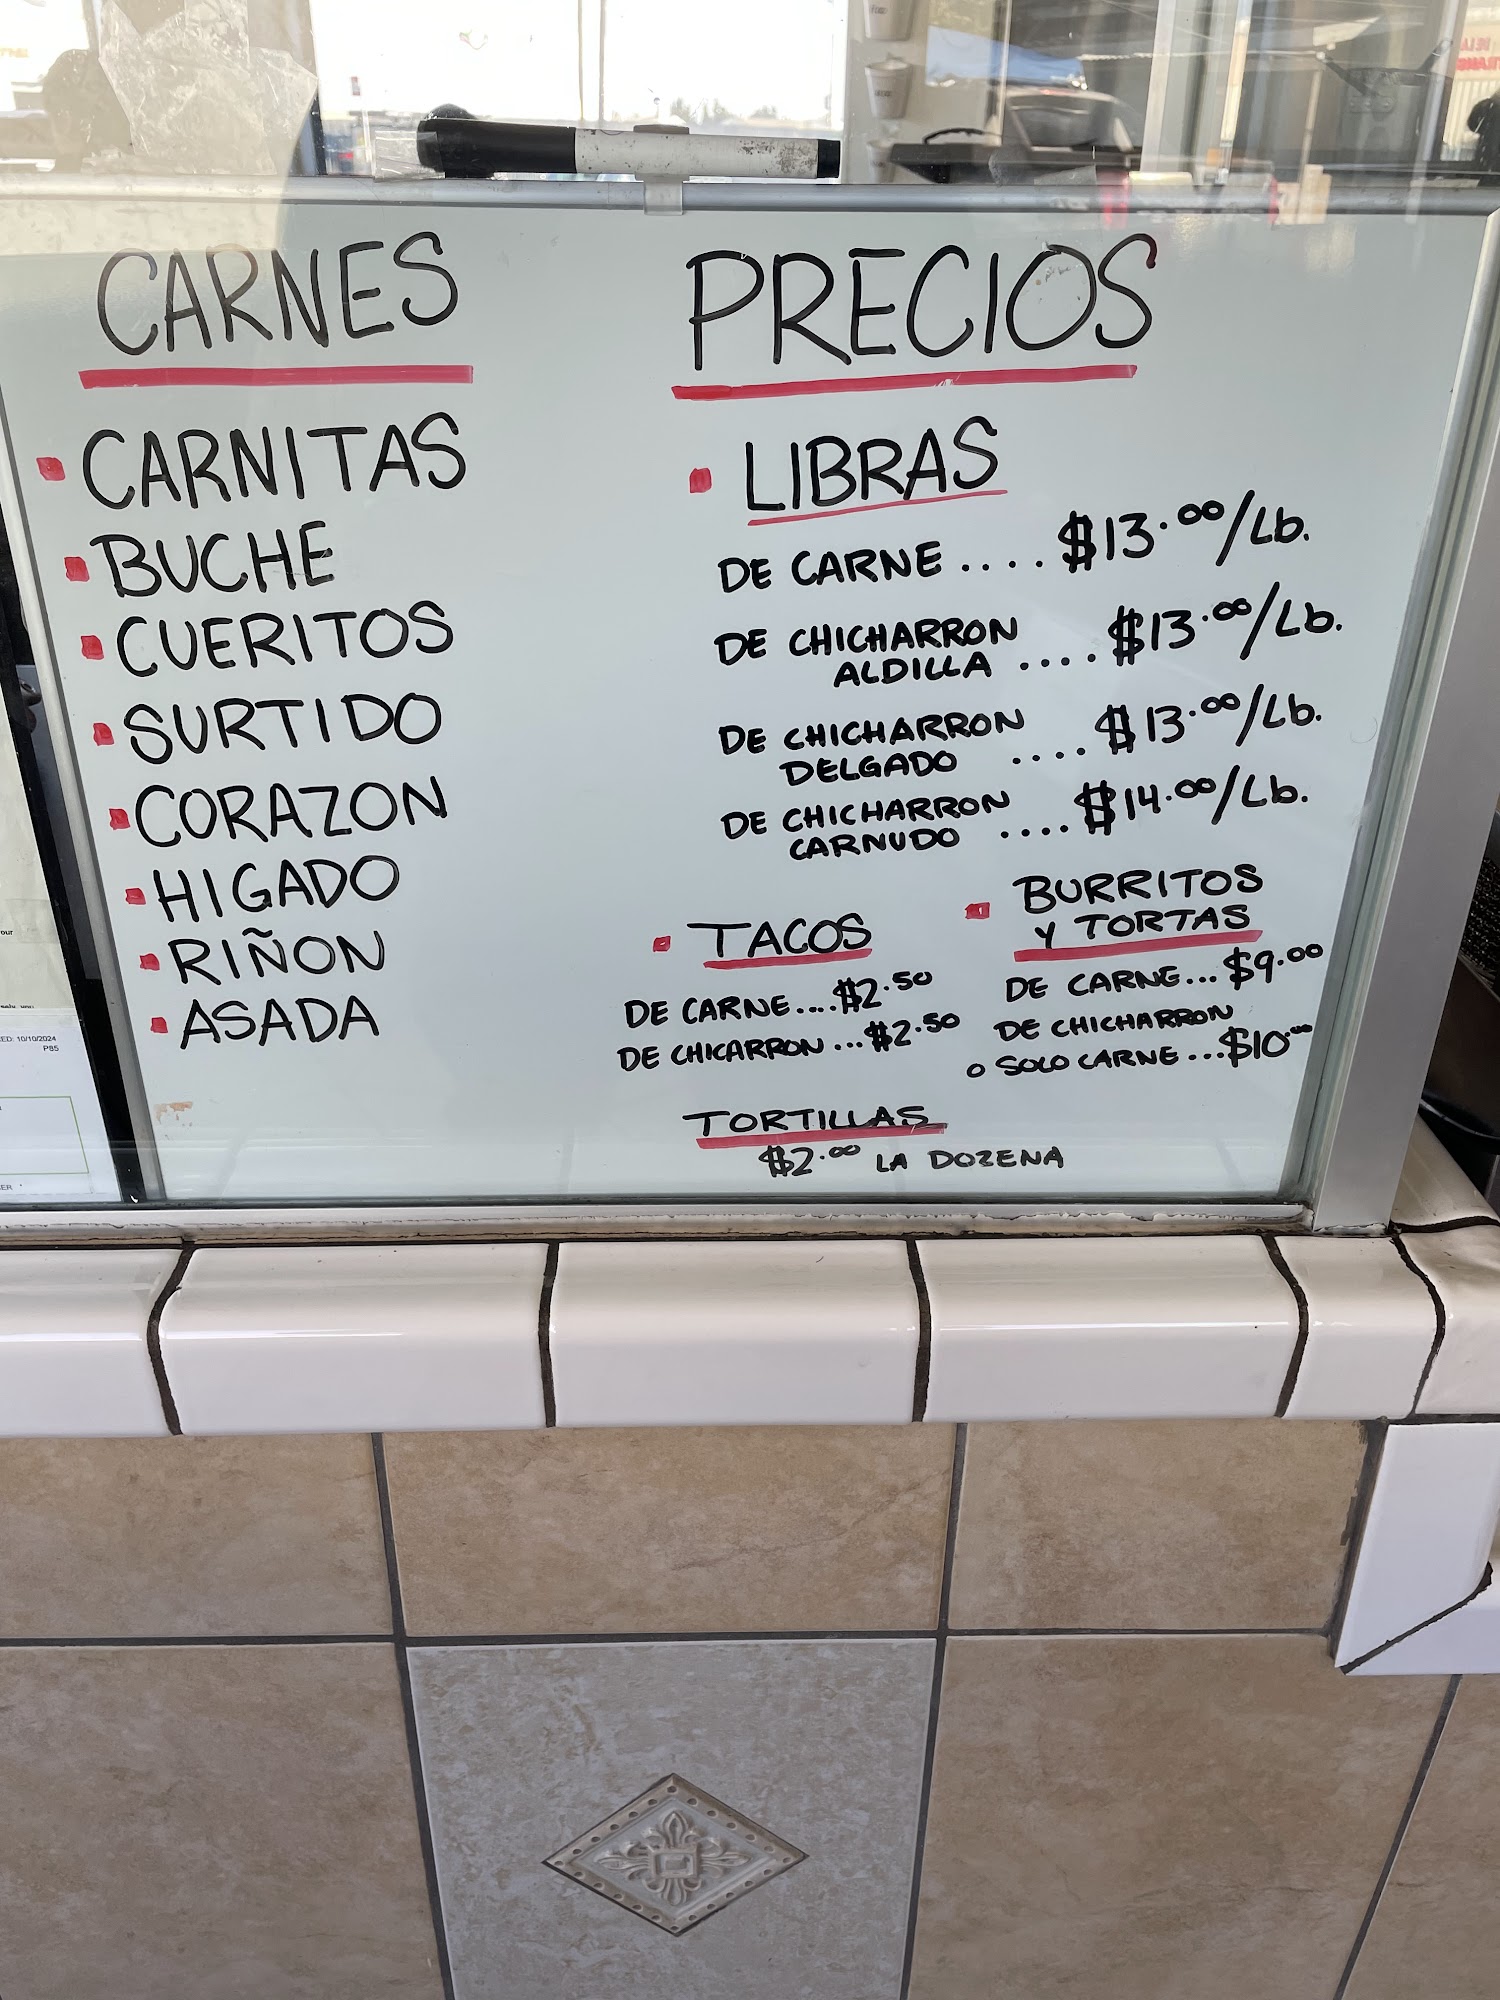 CARNES
CARNITAS
BUCHE
CUERITOS
SURTIDO
CORAZON
HIGADO
RIÑON
ASADA
PRECIOS
LIBRAS
DE CARNE .... $13.00/Lb.
DE CHICHARRON
ALDILLA .... $13.00/Lb.
DE CHICHARRON
DELGADO .... $13.00/Lb.
DE CHICHARRON
CARNUDO .... $14.00/Lb.
TACOS
DE CARNE.... $2.50
DE CHICARRON ... $2.50
BURRITOS
Y TORTAS
DE CARNE... $9.00
DE CHICHARRON
O SOLO CARNE ... $10.00
TORTILLAS
$2.00 LA DOZENA
10/10/2024
P85